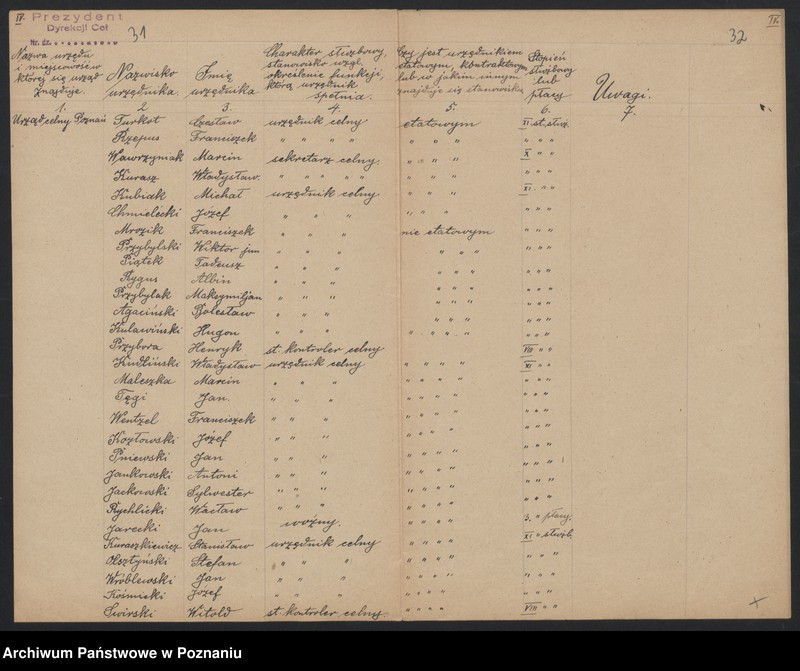 IV.
Prezydent
Dyrekcji Ceł
31
32
IV.
Nazwa urzędu i miejscowość w której się urząd znajduje.
Nazwisko urzędnika.
Imię urzędnika
Charakter służbowy, stanowisko wzgl. określenie funkcji, którą urzędnik spełnia.
Czy jest urzędnikiem etatowym, kontraktowym lub w jakim innym znajduje się stanowisku
Stopień służbowy lub płacy
Uwagi.
1. 2 3. 4. 5. 6. 7.
Urząd celny Poznań Turkot Czesław urzędnik celny etatowym XI st. służ.
Rzepus Franciszek " " " " " " " " "
Wawrzyniak Marcin sekretarz celny. " " " " X " "
Kurasz Władysław. " " " " " " " " " "
Kubiak Michał urzędnik celny " " " " XI. " "
Chmielecki Józef " " " " " " " " "
Mrozik Franciszek " " " nie etatowym " " "
Przybylski Wiktor jun " " " " " " " " "
Piątek Tadeusz " " " " " " " " "
Rygus Albin " " " " " " " " "
Przybylak Maksymiljan " " " " " " " " "
Agaciński Bolesław " " " " " " " " "
Kulawiński Hugon " " " " " " " " " "
Przybora Henryk st. kontroler celny VIII " "
Kudliński Władysław urzędnik celny " " " " XI " "
Maleszka Marcin " " " " " " " " " "
Tęgi Jan. " " " " " " " " " "
Wentzel Franciszek " " " " " " " " " "
Kozłowski Józef " " " " " " " " " "
Pniewski Jan " " " " " " " " " "
Jankowski Antoni " " " " " " " " " "
Jackowski Sylwester " " " " " " " " " "
Rychlicki Wacław " " " " " " " " " "
Jarecki Jan woźny. " " " " 3. " płacy.
Kuraszkiewicz Stanisław urzędnik celny " " " " XI " służb.
Olsztyński Stefan " " " " " " " " " "
Wróblewski Jan " " " " " " " " " "
Kośmicki Józef " " " " " " " " " "
Świrski Witold st. kontroler celny. " " " " VIII " "
Archiwum Państwowe w Poznaniu